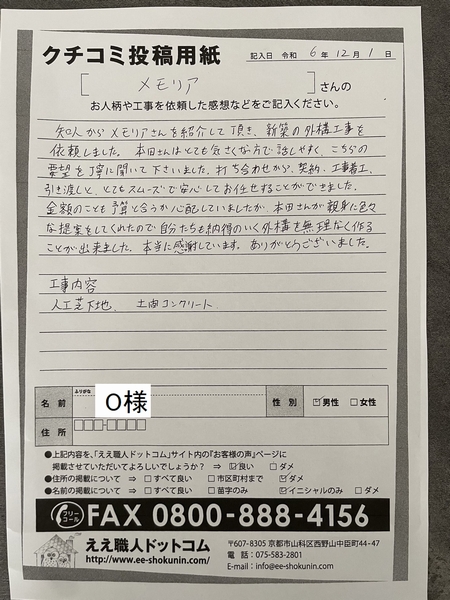 クチコミ投稿用紙
記入日 令和 6年 12月 1日
[ メモリア ]さんの
お人柄や工事を依頼した感想などをご記入ください。
知人からメモリアさんを紹介して頂き、新築の外構工事を
依頼しました。本田さんはとても気さくな方で話しやすく、こちらの
要望を丁寧に聞いて下さいました。打ち合わせから、契約、工事着工、
引き渡しと、とてもスムーズで安心してお任せすることができました。
金額のことも予算と合うか心配していましたが、本田さんが親身に色々
な提案をしてくれたので自分たちも納得のいく外構を無理なく作る
ことが出来ました。本当に感謝しています。ありがとうございました。
工事内容
人工芝下地、土間コンクリート
ふりがな
名前 O様 性別 ☑男性 □女性
住所
●上記内容を、「ええ職人ドットコム」サイト内の『お客様の声』ページに
掲載させていただいてよろしいでしょうか? ⇒ ☑良い □ダメ
●住所の掲載について ⇒ □すべて良い □市区町村まで ☑ダメ
●名前の掲載について ⇒ □すべて良い □苗字のみ ☑イニシャルのみ □ダメ
フリーコール FAX 0800-888-4156
ええ職人ドットコム
http://www.ee-shokunin.com/
〒607-8305 京都市山科区西野山中臣町44-47
電話:075-583-2801
E-mail:info@ee-shokunin.com